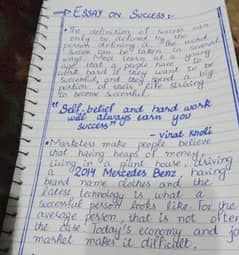 → ESSAY ON SUCCESS :-
• The definition of success can
only be defined by the
person defining it. The word
success can be taken in several
ways. Most learn at a young
age that a people have to
work hard if they want to be
successful, and they spend a big
portion of their life striving
to become successful.
"Self-belief and hard work
will always earn you
success"
- Virat Kholi
• Marketers make people believe
that having heaps of money,
living in a giant house, driving
a 2014 Mercedes Benz, having
brand name clothes and the
latest technology is what a
successful person looks like. For the
average person, that is not often
the case. Today's economy and jo
market makes it difficult.